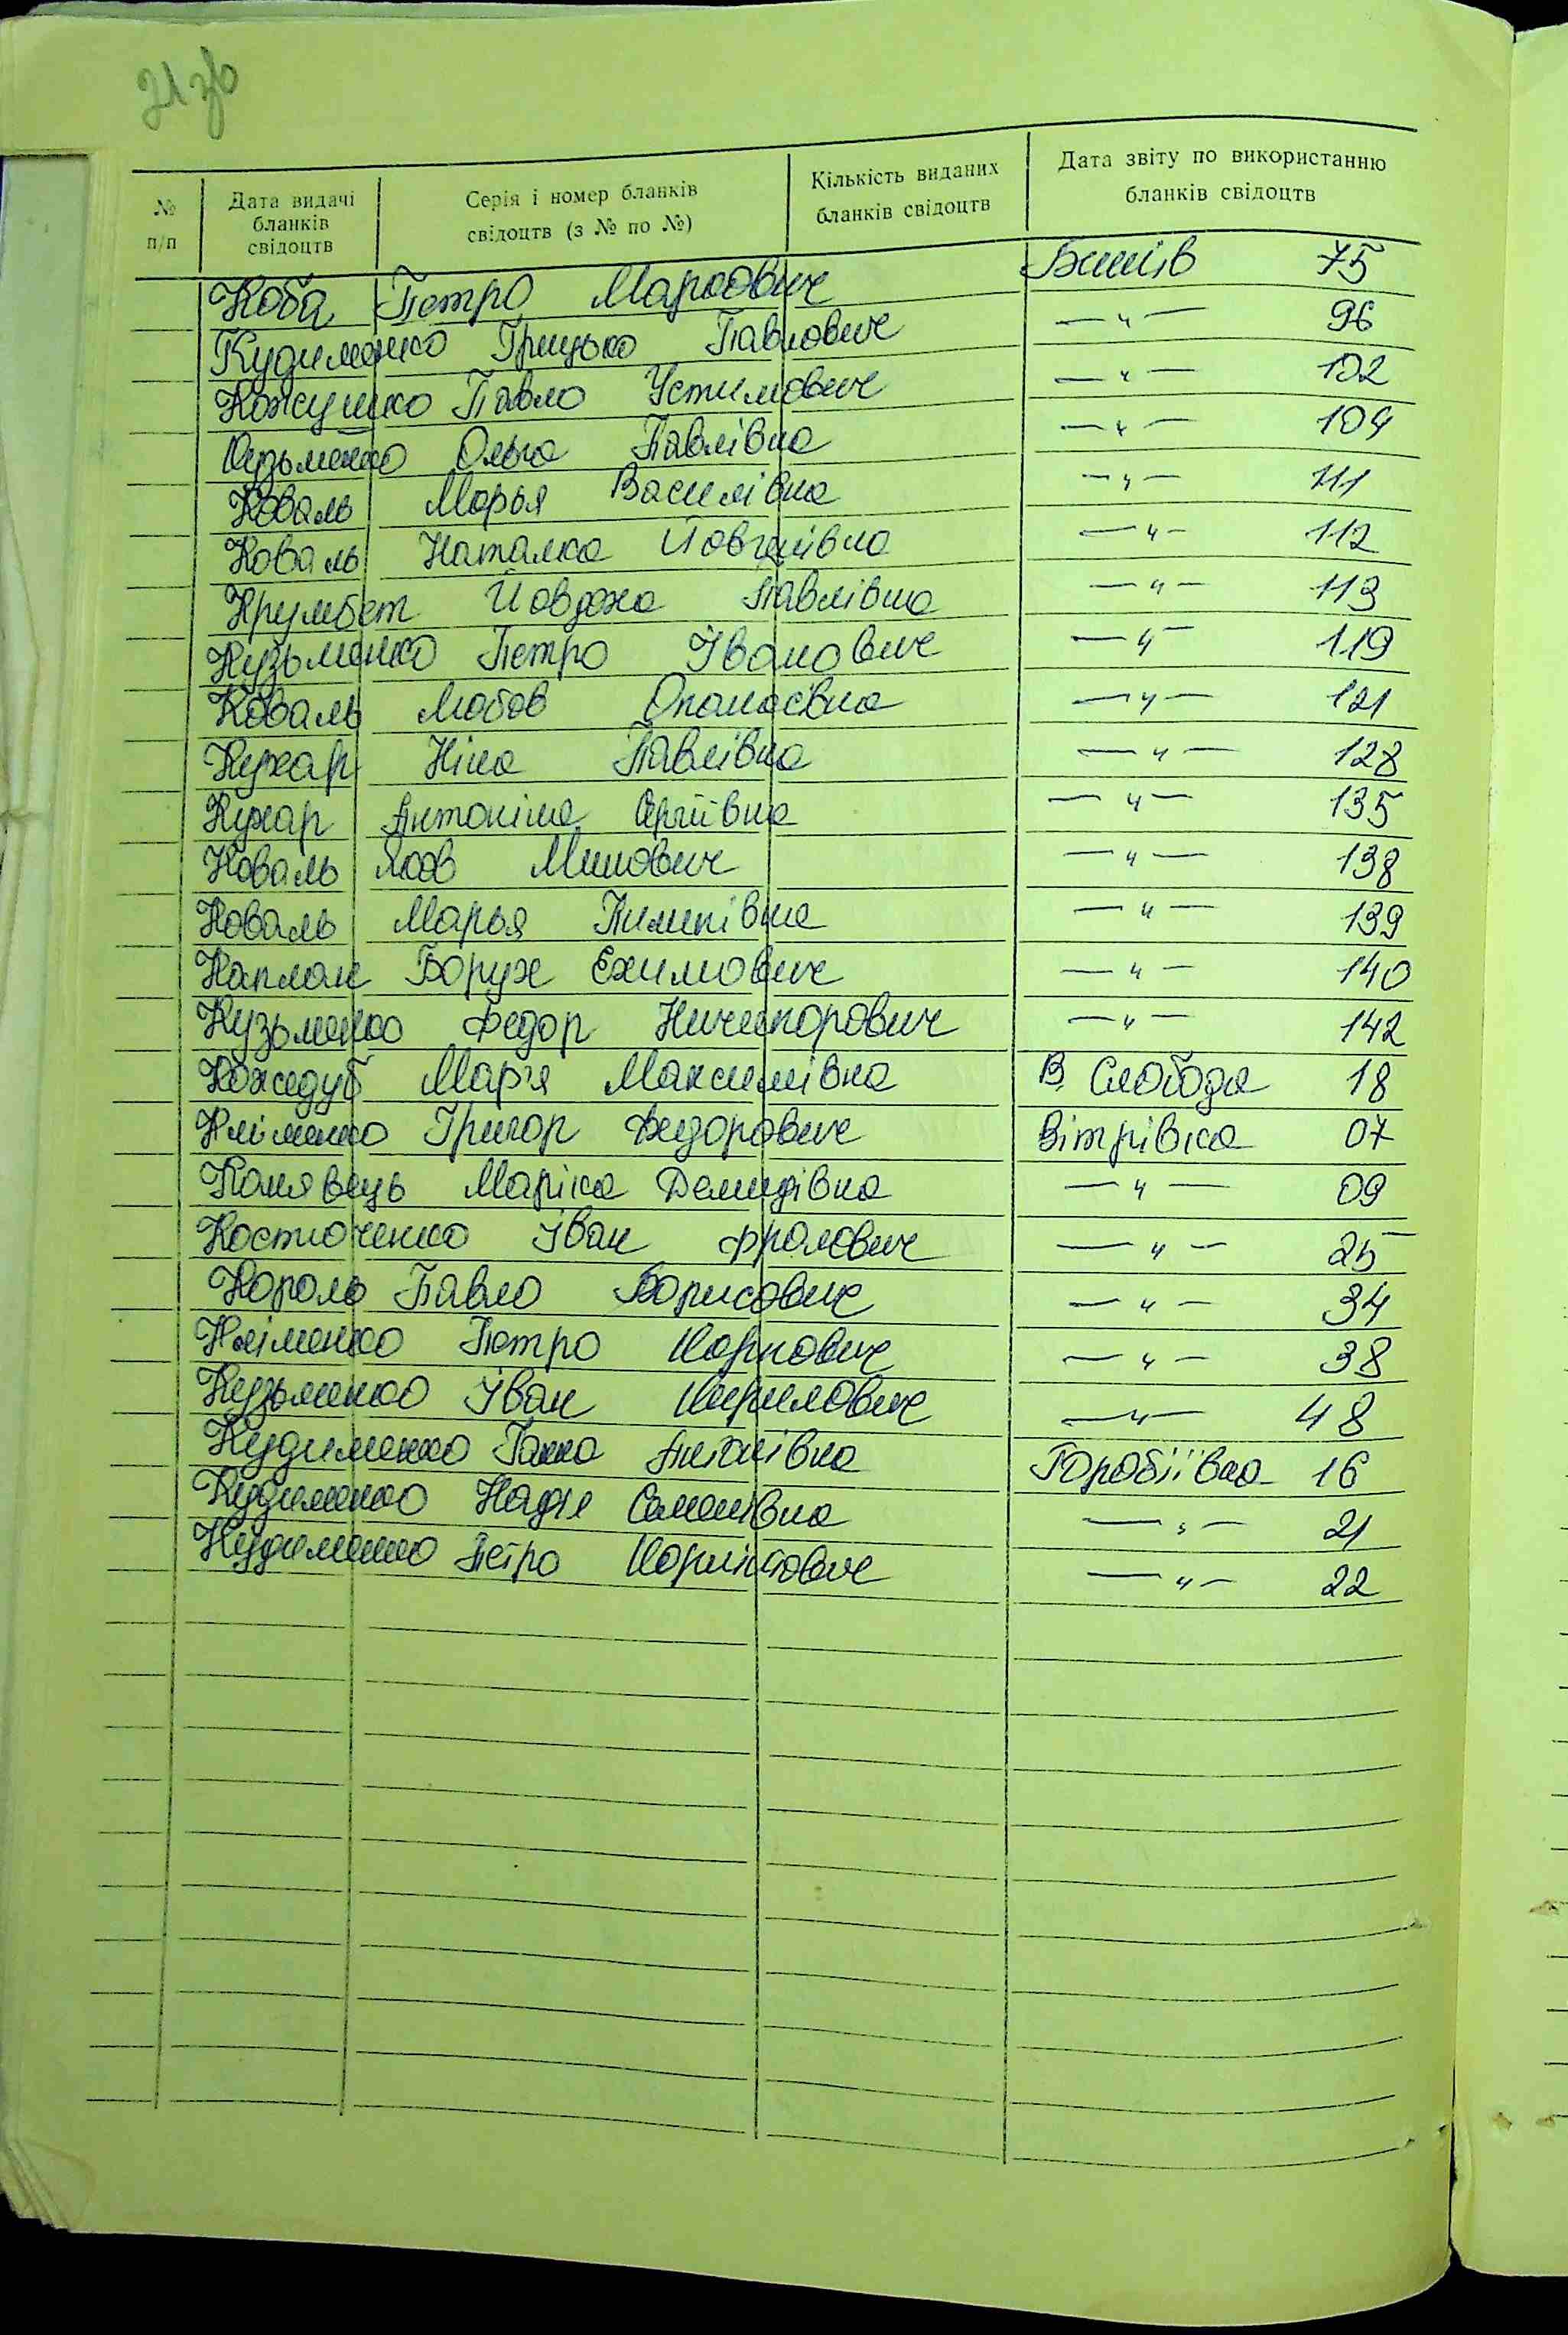 21 зв
№ п/п Дата видачі бланків свідоцтв Серія і номер бланків свідоцтв (з № по №) Кількість виданих бланків свідоцтв Дата звіту по використанню бланків свідоцтв
Коба Петро Маркович Бишів 75
Кудименко Грицько Павлович —"— 96
Кожушко Павло Устимович —"— 102
Кузьменко Ольга Павлівна —"— 104
Коваль Марья Василівна —"— 111
Коваль Наталка Йовгенівна —"— 112
Крумбет Йовдоха Павлівна —"— 113
Кузьменко Петро Іванович —"— 119
Коваль Любов Опанасівна —"— 121
Кухар Ніна Павлівна —"— 128
Кухар Антоніна Сергіївна —"— 135
Коваль Яков Минович —"— 138
Коваль Марья Пилипівна —"— 139
Каплан Борух Ехимович —"— 140
Кузьменко Федор Ничипорович —"— 142
Кожедуб Мар'я Максимівна В. Слобода 18
Кліменко Григор Федорович Вітрівка 07
Канявець Маріка Демидівна —"— 09
Костюченко Іван Фролович —"— 25
Король Павло Борисович —"— 34
Кліменко Петро Карпович —"— 38
Кузьменко Іван Кирилович —"— 48
Кудименко Ганна Горобіївка 16
Кудименко Надія Семенівна —"— 21
Кудименко Петро —"— 22